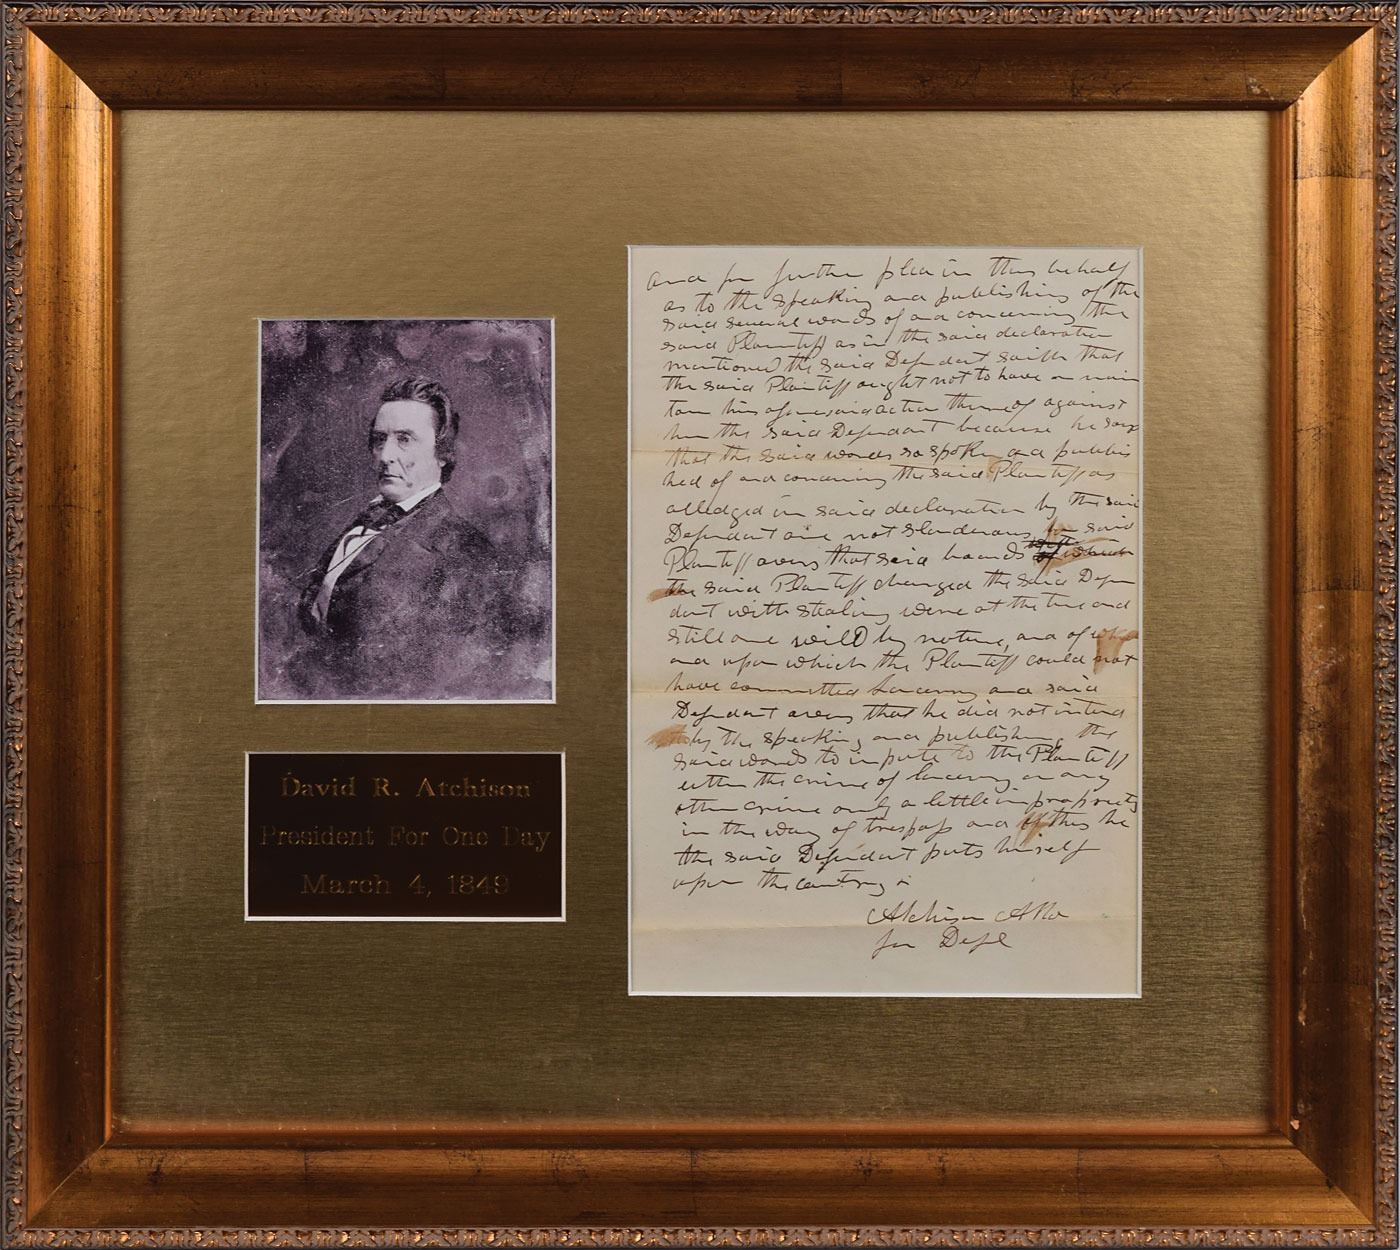 David R. Atchison
President For One Day
March 4, 1849
and for further plea in this behalf
as to the speaking and publishing of the
said several words of and concerning the
said Plaintiff as in the said declaration
mentioned the said Defendant saith that
the said Plaintiff ought not to have or main
tain his aforesaid action thereof against
him the said Defendant because he says
that the said words so spoken and publis
hed of and concerning the said Plaintiff as
alledged in said declaration by the said
Defendant are not slanderous said
Plaintiff avers that said
the said Plaintiff charged the said Defen
dant with stealing were at the time and
still are wild by nature, and of which
and upon which the Plaintiff could not
have committed Larceny and said
Defendant avers that he did not intend
by the speaking and publishing the
said words to impute to the Plaintiff
either the crime of larceny or any
other crime only a little impropriety
in the way of trespass and of this he
the said Defendant puts himself
upon the country
Atchison Atto
for Deft